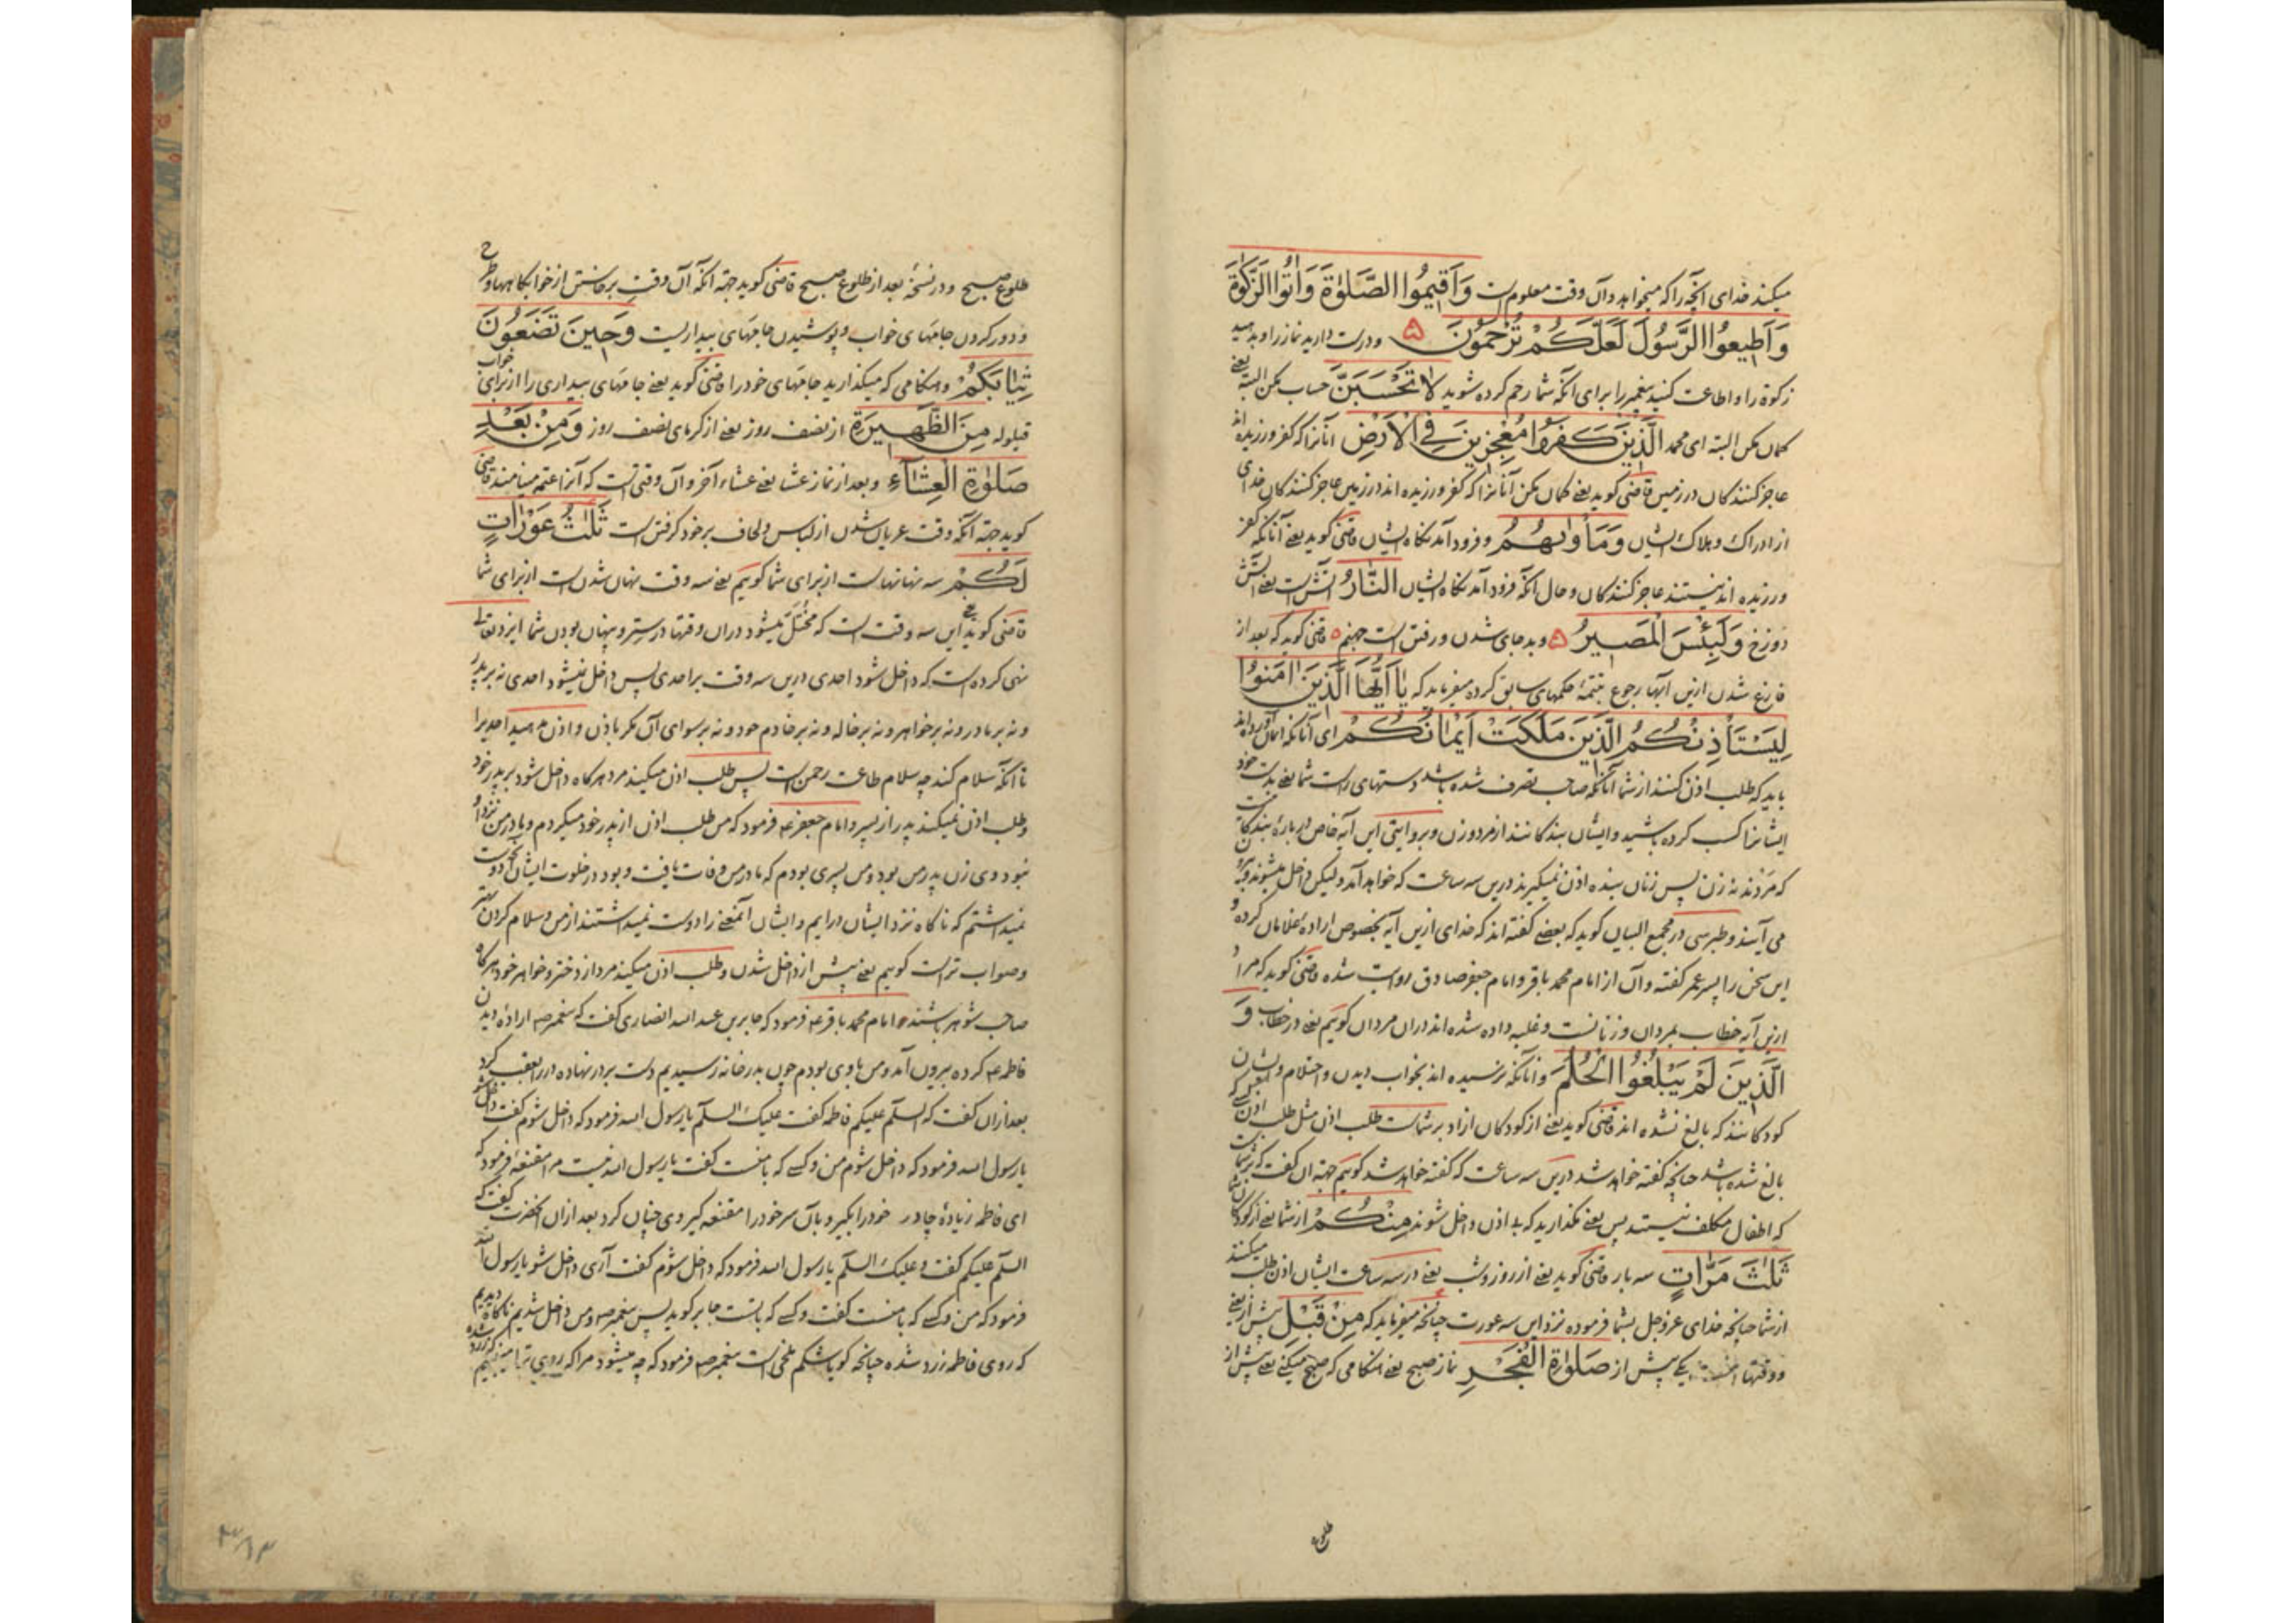 میکند خدای آنچه را که میخواهد و آن وقت معلوم است وَاَقیمُوا الصَّلوٰةَ وَاٰتُوا الزَّکوٰةَ
وَاَطیعُوا الرَّسُولَ لَعَلَّکُمْ تُرْحَمُونَ ودرست دارید نماز را و بدهید
زکوة را و اطاعت کنید پیغمبر را برای آنکه شما رحم کرده شوید لا تَحْسَبَنَّ حساب مکن البته یعنی
گمان مکن البته ای محمد الَّذینَ کَفَرُوا مُعْجِزینَ فِی الْاَرْضِ آنانرا که کفر ورزیده اند
عاجز کنندکان در زمین قاضی کوید یعنی کمان مکن آنانرا که کفر ورزیده اند در زمین عاجز کنندکان خدای
از ادراک و هلاک ایشان وَمَأْوٰیهُمُ و فرود آمدنکاه ایشان قاضی کوید یعنی آنانکه کفر
ورزیده اند نیستند عاجز کنندکان و حال آنکه فرود آمدنکاه ایشان النَّارُ آتش است یعنی آتش
دوزخ وَلَبِئْسَ الْمَصیرُ و بد جای شدن و رفتن است جهنم قاضی کوید که بعد از
فارغ شدن ازین آیها رجوع بتتمهٔ حکمهای سابق کرده میفرماید که یٰٓا اَیُّهَا الَّذینَ اٰمَنُوا
لِیَسْتَأْذِنْکُمُ الَّذینَ مَلَکَتْ اَیْمٰانُکُمْ ای آنانکه ایمان آورده اند
باید که طلب اذن کنند از شما آنانکه صاحب تصرف شده باشد دستهای راست شما یعنی بدست خود
ایشانرا کسب کرده باشید و ایشان بندکانند از مرد و زن و بروایتی این آیه خاص در بارهٔ بندکانست
که مردند نه زن پس زنان بنده اذن نمیکیرند درین سه ساعت که خواهد آمد و لیکن داخل میشوند و
می آیند و طبرسی در مجمع البیان کوید که بعضی کفته اند که خدای ازین آیه بخصوص اراده غلامان کرده و
این سخن را پسر عمر کفته و آن از امام محمد باقر و امام جعفر صادق روایت شده قاضی کوید که مراد
ازین آیه خطاب بمردان و زنانست و غلبه داده شده اند دران مردان کوییم یعنی در خطاب وَ
الَّذینَ لَمْ یَبْلُغُوا الْحُلُمَ و آنانکه نرسیده اند بخواب دیدن و احتلام و ایشان
کودکانند که بالغ نشده اند قاضی کوید یعنی از کودکان ازاد بر شماست طلب اذن مثل طلب اذن
بالغ شده باشد چنانچه کفته خواهد شد درین سه ساعت که کفته خواهد شد کوییم جهة آن کفت که بر شماست
که اطفال مکلف نیستند پس یعنی نکذارید که بی اذن داخل شوند مِنْکُمْ از شما یعنی از کودکان شما
ثَلٰثَ مَرّٰاتٍ سه بار قاضی کوید یعنی از روز و شب یعنی در سه ساعت ایشان اذن طلب میکنند
از شما چنانچه خدای عز و جل بشما فرموده نزد این سه عورت چنانچه میفرماید که مِنْ قَبْلِ پیش از یعنی
و وقتها یکی پیش از صَلوٰةِ الْفَجْرِ نماز صبح یعنی هنکامی که صبح میکنی یعنی پیش از
طلوع
طلوع صبح و در نسخهٔ بعد از طلوع صبح قاضی کوید جهة آنکه آن وقت برخاستن از خوابکاهها و طرح
و دور کردن جامهای خواب و پوشیدن جامهای بیداریست وَحینَ تَضَعُونَ
ثِیٰابَکُمْ و هنکامی که میکذارید جامهای خود را قاضی کوید یعنی جامهای بیداری را از برای خواب
قیلوله مِنَ الظَّهیرَةِ از نصف روز یعنی از کرمای نصف روز وَمِنْ بَعْدِ
صَلوٰةِ الْعِشٰٓاءِ و بعد از نماز عشا یعنی عشاء آخر و آن وقتی است که آنرا عتمه مینامند قاضی
کوید جهة آنکه وقت عریان شدن از لباس و لحاف بر خود کرفتن است ثَلٰثُ عَوْرٰاتٍ
لَکُمْ سه نهانهاست از برای شما کوییم یعنی سه وقت نهان شدن است از برای شما
قاضی کوید یعنی این سه وقت است که مختل میشود دران وقتها در ستر و پنهان بودن شما ایزد تعالی
نهی کرده است که داخل شود احدی درین سه وقت بر احدی پس داخل نمیشود احدی نه بر پدر
و نه بر مادر و نه بر خواهر و نه بر خاله و نه بر خادم خود و نه بر سوای آن مکر باذن و اذن مدهید احدیرا
تا آنکه سلام کند چه سلام طاعت رحمن است پس طلب اذن میکند مرد هرکاه داخل شود بر پدر خود
و طلب اذن نمیکند پدر از پسر و امام جعفر ع فرمود که من طلب اذن از پدر خود میکردم و مادر من نزد او
نبود و وی زن پدر من بود و من پسری بودم که مادر من وفات یافت و بود در خلوت ایشان آنچه دوست
نمیداشتم که ناکاه نزد ایشان درایم و ایشان آنمعنی را دوست نمیداشتند از من و سلام کردن
و صواب تر است کوییم یعنی پیش از داخل شدن و طلب اذن میکند مرد از دختر و خواهر خود هرکاه
صاحب شوهر باشند و امام محمد باقر ع فرمود که جابر بن عبد الله انصاری کفت که پیغمبر ص ارادهٔ دیدن
فاطمه ع کرده بیرون آمد و من با وی بودم چون بدر خانه رسیدیم دست بر در نهاده در را بعقب کرد
بعد ازان کفت که السلم علیکم فاطمه کفت علیک السلم یا رسول الله فرمود که داخل شوم کفت داخل شو
یا رسول الله فرمود که داخل شوم من و کسی که با منست کفت یا رسول الله نیست مرا مقنعه فرمود که
ای فاطمه زیادهٔ چادر خود را بکیر و بآن سر خود را مقنعه کیر وی چنان کرد بعد ازان آنحضرت کفت که
السلم علیکم کفت و علیک السلم یا رسول الله فرمود که داخل شوم کفت آری داخل شو یا رسول الله
فرمود که من و کسی که با منست کفت و کسی که با تست جابر کوید پس پیغمبر ص و من داخل شدیم ناکاه دیدیم
که روی فاطمه زرد شده چنانچه کویا شکم ملخی است پیغمبر ص فرمود که چه میشود مرا که روی ترا میبینم که زرد شده